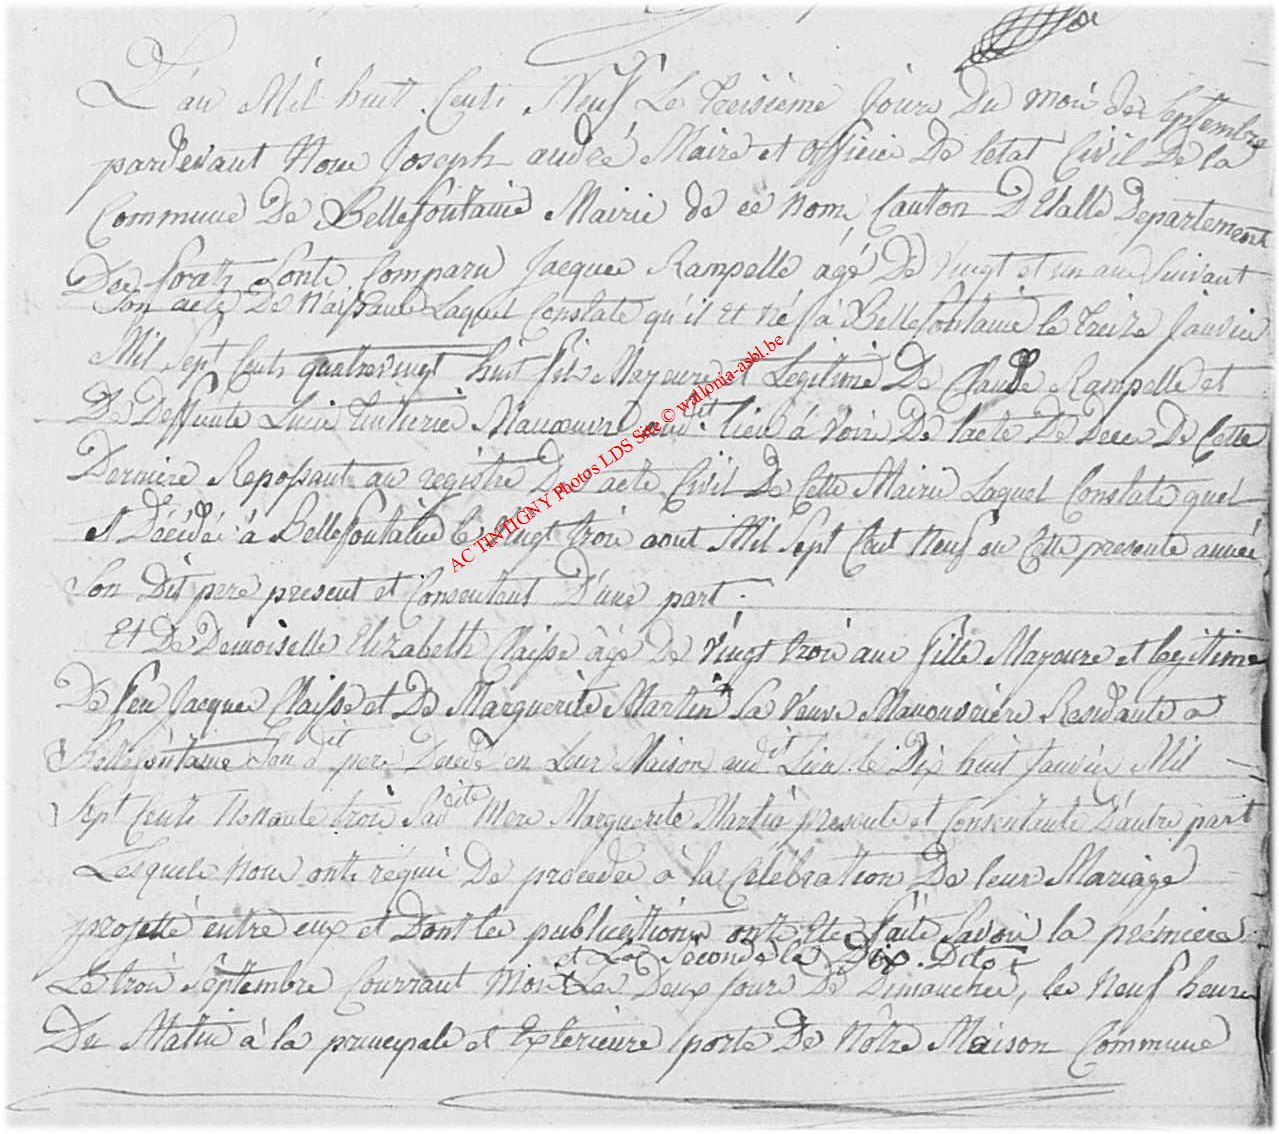 L'an Mil huit Cents Neuf Le Treisieme Jour Du mois de Septembre
pardevant Nous Joseph andré Maire et officier De letat Civil De la
Commune De Bellefontaine Mairie de ce nom Canton D'Etalle Departement
Des Forets Sont Comparu Jacques Rampelle âgé De vingt et un ans Suivant
Son acte De Naissance Laquel Constate qu'il Et né à Bellefontaine le treize Janvier
Mil Sept Cents quatrevingt huit fils Mayeure et Légitime De Claude Rampelle et
De Deffunte Lucie Manœuvre audit lieu à voir De lacte De Deces De Cette
Derniere Repossant au registre De acte Civil De Cette Mairie Laquel Constate quel
et Décédée à Bellefontaine le Vingt trois aout Mil Sept Cent Neuf ou Cette presente année
Son Dit pere present et Consentent D'une part.
Et De Demoiselle Elizabeth Claisse âgé De vingt trois ans fille Mayeure et legitime
De feu Jacques Claisse et De Marguerite Martin Sa Veuve Manouvriere Residante a
Bellefontaine Son dit pere Decedé en Leur Maison audit Lieu le Dix huit Janvier Mil
Sept Cents Nonante trois Sadite Mere Marguerite Martin presente et Consentante D'autre part
Lesquels Nous onts réquis De proceder à la Célébration De leur Mariage
projetté entre eux et Dont les publications onts Eté faite Savoir la prémiere
et La Seconde le Dix Dito
Le trois Septembre Courrant Mois Les Deux Jours De Dimanches, les Neuf heures
Du Matin à la principale et Exterieure porte De Nôtre Maison Commune
AC TINTIGNY Photos LDS Site © wallonia-asbl.be